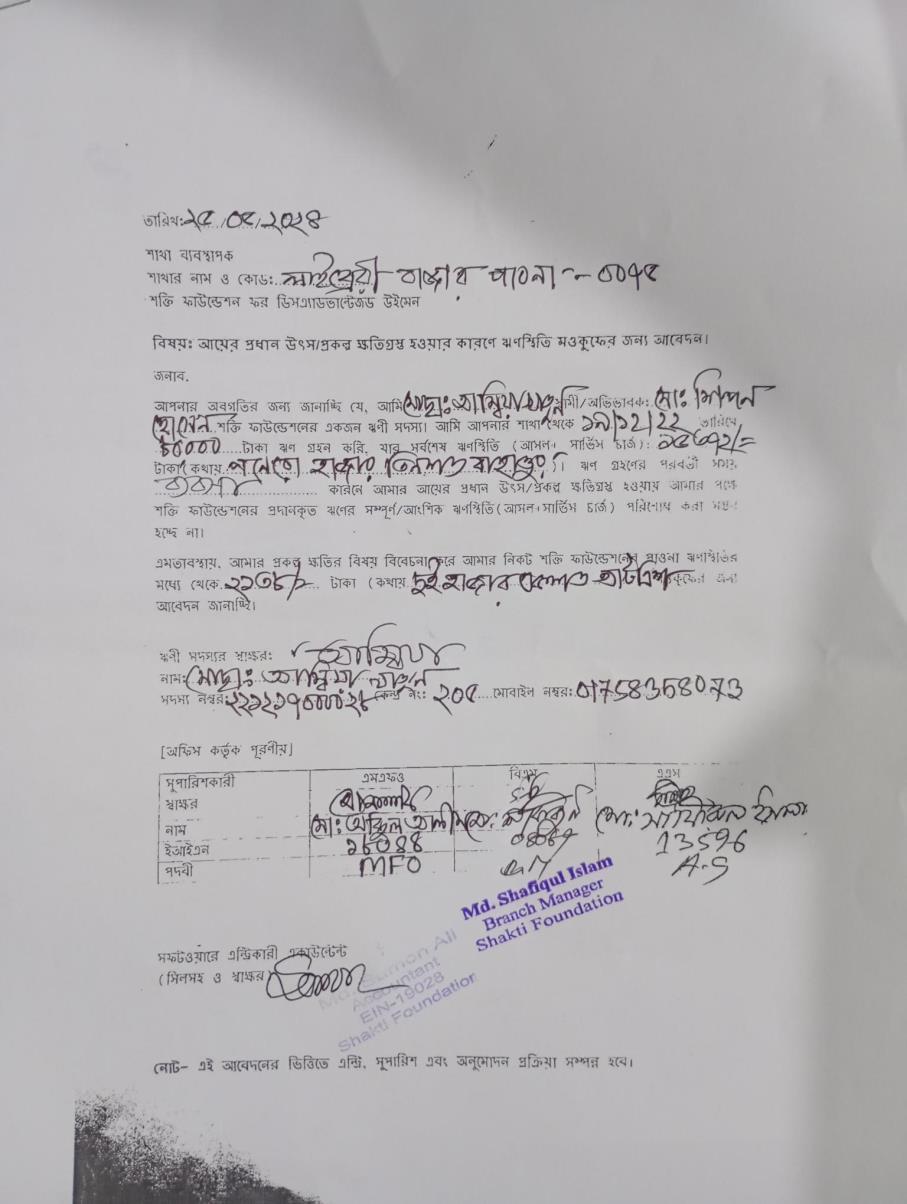 তারিখঃ ২৫/০৫/২০২৪
শাখা ব্যবস্থাপক
শাখার নাম ও কোড: লাইব্রেরী বাজার পাবনা - ০০৭৫
শক্তি ফাউন্ডেশন ফর ডিসএ্যাডভান্টেজড উইমেন
বিষয়: আয়ের প্রধান উৎস/প্রকল্প ক্ষতিগ্রস্থ হওয়ার কারণে ঋণস্থিতি মওকুফের জন্য আবেদন।
জনাব,
আপনার অবগতির জন্য জানাচ্ছি যে, আমি মোছাঃ আম্বিয়া খাতুন স্বামী/অভিভাবক: মোঃ লিপন
হোসেন শক্তি ফাউন্ডেশনের একজন ঋণী সদস্য। আমি আপনার শাখা থেকে ১৯/১২/২২ তারিখে
৪০০০০ টাকা ঋণ গ্রহন করি, যার সর্বশেষ ঋণস্থিতি (আসল+ সার্ভিস চার্জ): ১৫৩৭২/=
টাকা (কথায় পনেরো হাজার তিনশত বাহাত্তুর)। ঋণ গ্রহণের পরবর্তী সময়
ব্যবসা কারনে আমার আয়ের প্রধান উৎস/প্রকল্প ক্ষতিগ্রস্থ হওয়ায় আমার পক্ষে
শক্তি ফাউন্ডেশনের প্রদানকৃত ঋণের সম্পূর্ণ/আংশিক ঋণস্থিতি (আসল+সার্ভিস চার্জ) পরিশোধ করা সম্ভব
হচ্ছে না।
এমতাবস্থায়, আমার প্রকল্প ক্ষতির বিষয় বিবেচনা করে আমার নিকট শক্তি ফাউন্ডেশনের পাওনা ঋণস্থিতির
মধ্যে থেকে ২১৩৮/= টাকা (কথায় দুই হাজার একশত আটত্রিশ মওকুফের জন্য
আবেদন জানাচ্ছি।
ঋণী সদস্যর স্বাক্ষর: আম্বিয়া
নাম: মোছাঃ আম্বিয়া খাতুন
সদস্য নম্বর: কেন্দ্র নং: ২০৫ মোবাইল নম্বর: 01758358073
[অফিস কর্তৃক পূরণীয়]
সুপারিশকারী এমএফও বিএম এএস
স্বাক্ষর
নাম মোঃ মোঃ শফিকুল মোঃ ইসলাম
ইআইএন ১৬০৪৪ 13596
পদবী MFO B.M A.S
Md. Shafiqul Islam
Branch Manager
Shakti Foundation
সফটওয়ারে এন্ট্রিকারী একাউন্টেন্ট
(সিলসহ ও স্বাক্ষর)
Md. Sumon Ali
Accountant
EIN-19028
Shakti Foundation
নোট- এই আবেদনের ভিত্তিতে এন্ট্রি, সুপারিশ এবং অনুমোদন প্রক্রিয়া সম্পন্ন হবে।